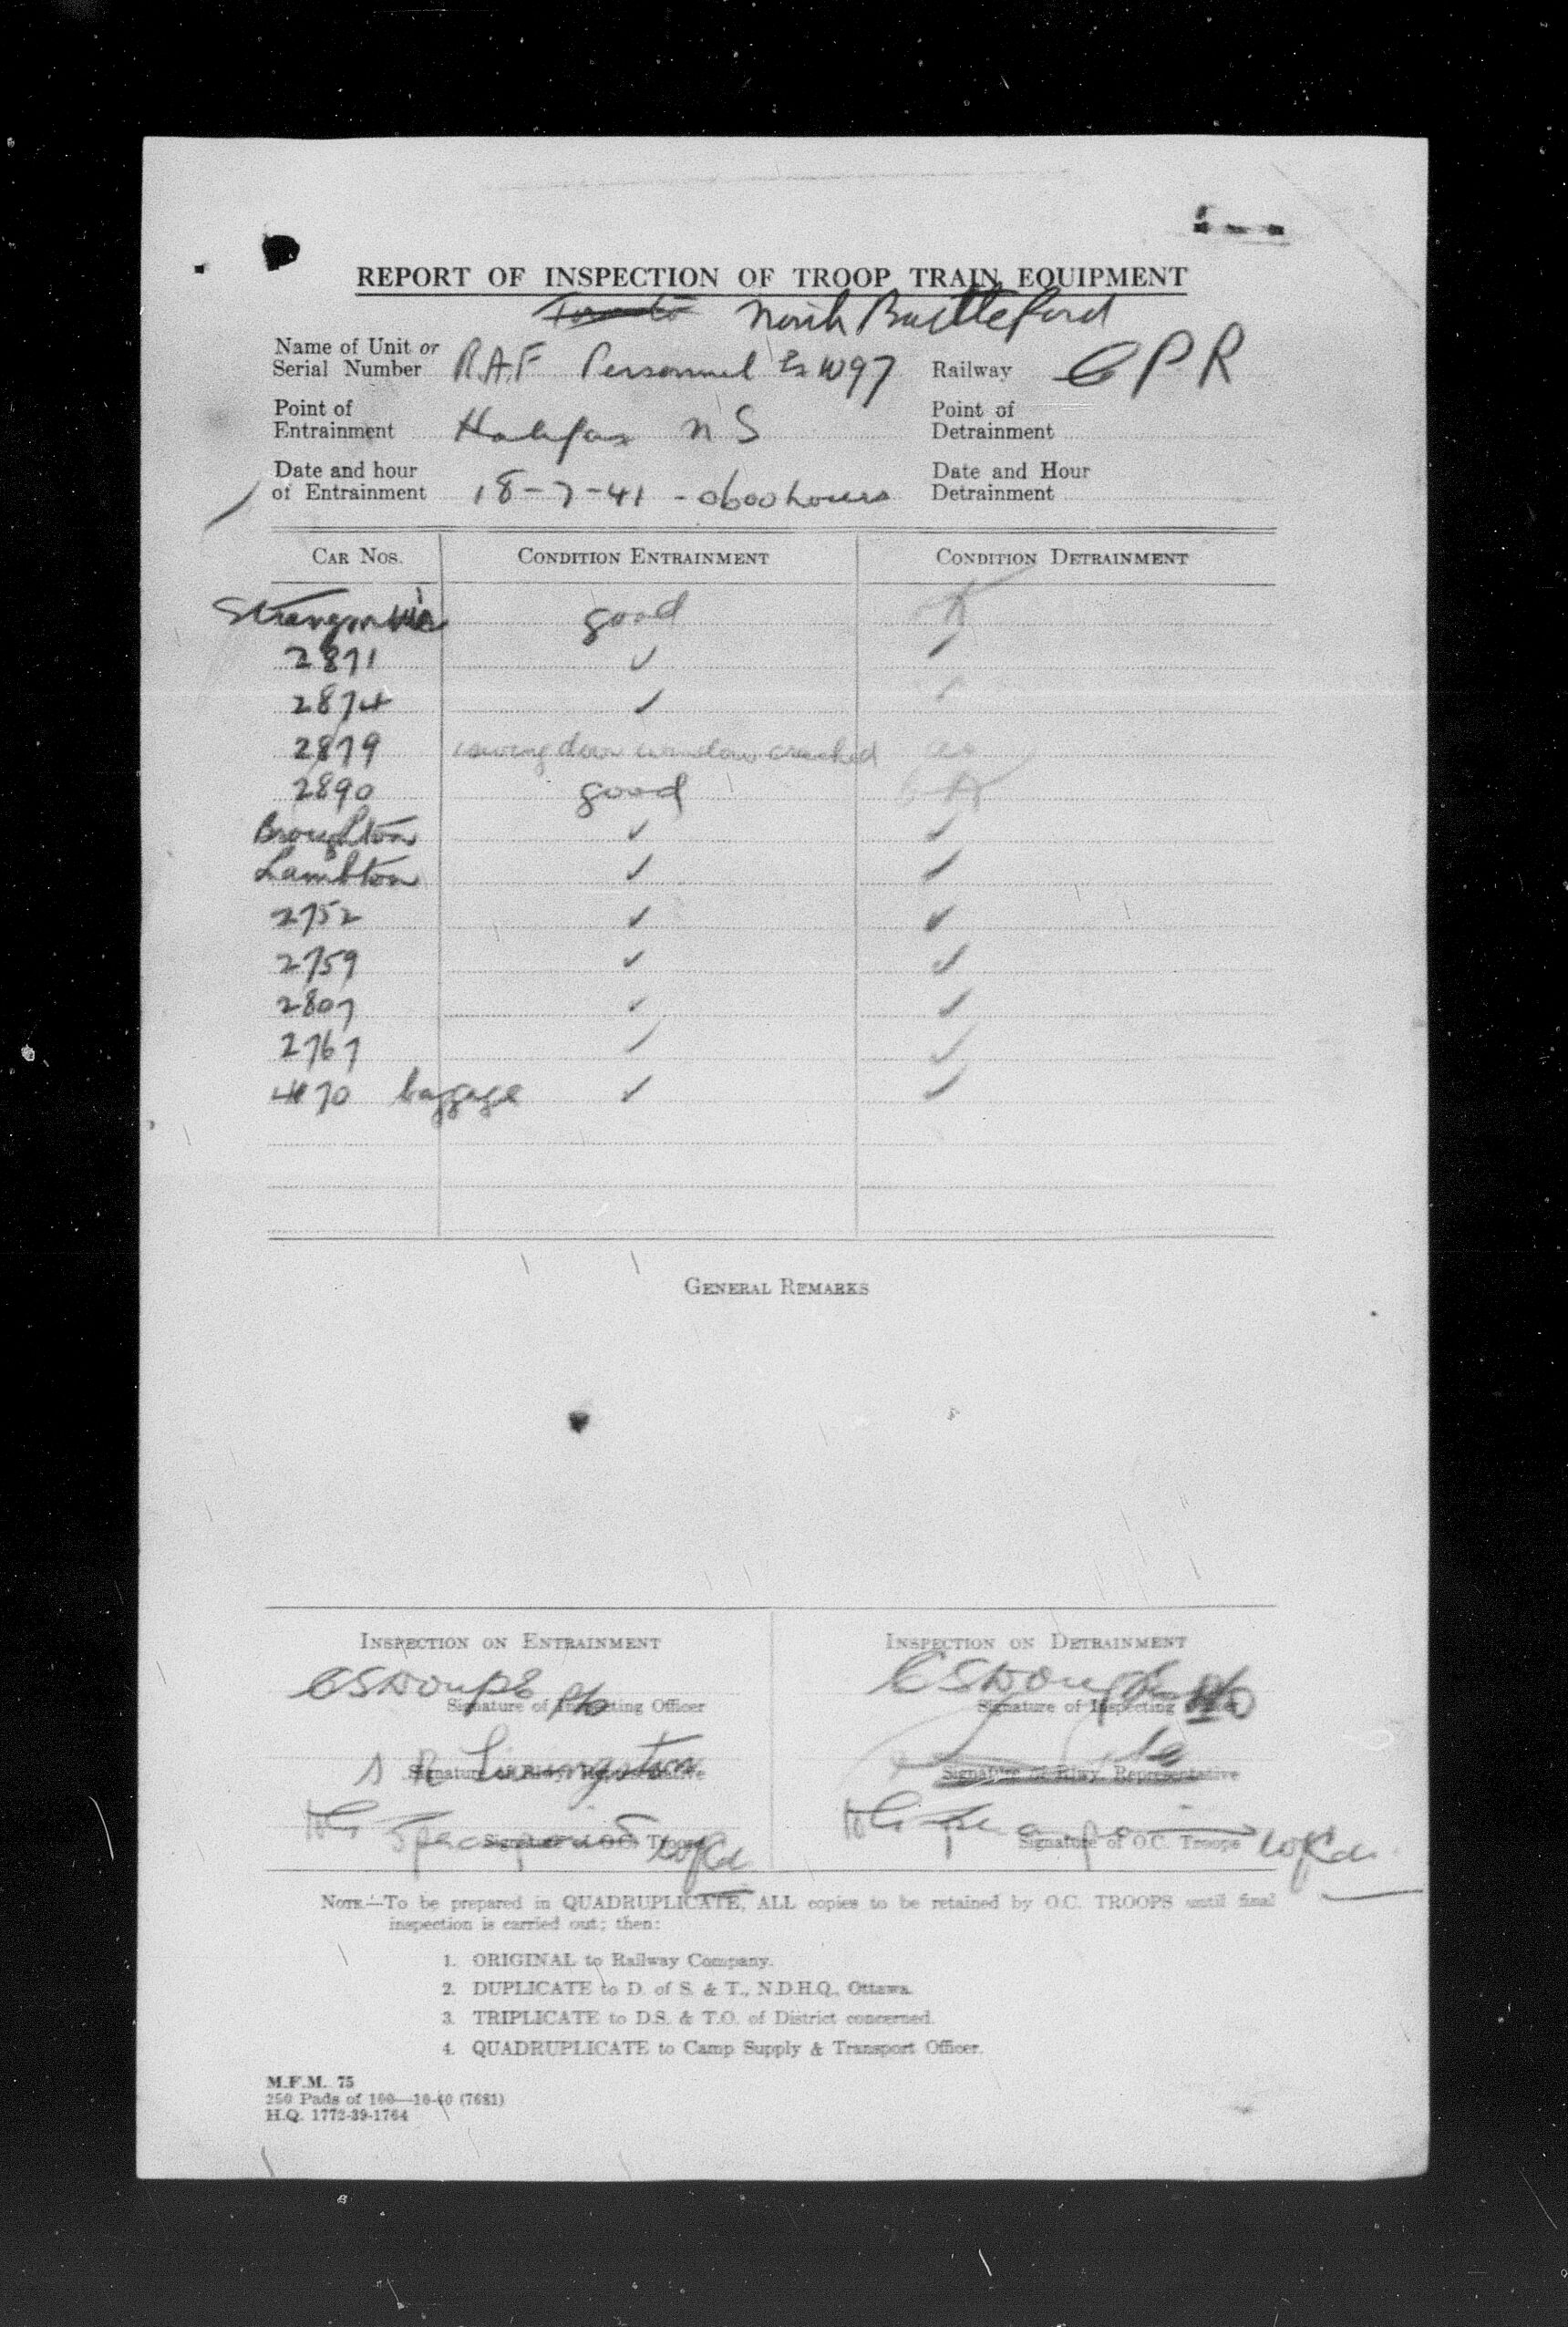 REPORT OF INSPECTION OF TROOP TRAIN EQUIPMENT
Toronto North Battleford
Name of Unit or
Serial Number R.A.F Personnel Ex W97 Railway CPR
Point of Entrainment Halifax N S Point of Detrainment
Date and hour of Entrainment 18-7-41 - 0600 hours Date and Hour Detrainment
CAR NOS. CONDITION ENTRAINMENT CONDITION DETRAINMENT
good
2871 ✓ ✓
2874 ✓ ✓
2879 window cracked
2890 good
Broughton ✓ ✓
Lambton ✓ ✓
2752 ✓ ✓
2759 ✓ ✓
2807 ✓ ✓
2767 ✓ ✓
4170 baggage ✓ ✓
GENERAL REMARKS
INSPECTION ON ENTRAINMENT INSPECTION ON DETRAINMENT
Signature of Inspecting Officer Signature of Inspecting
S R Livingston
Signature of Rlwy. Representative Signature of Rlwy. Representative
Signature of O.C. Troops Signature of O.C. Troops
NOTE—To be prepared in QUADRUPLICATE, ALL copies to be retained by O.C. TROOPS until final
inspection is carried out; then:
1. ORIGINAL to Railway Company.
2. DUPLICATE to D. of S. & T., N.D.H.Q., Ottawa.
3. TRIPLICATE to D.S. & T.O. of District concerned.
4. QUADRUPLICATE to Camp Supply & Transport Officer.
M.F.M. 75
250 Pads of 100—10-40 (7681)
H.Q. 1772-39-1764